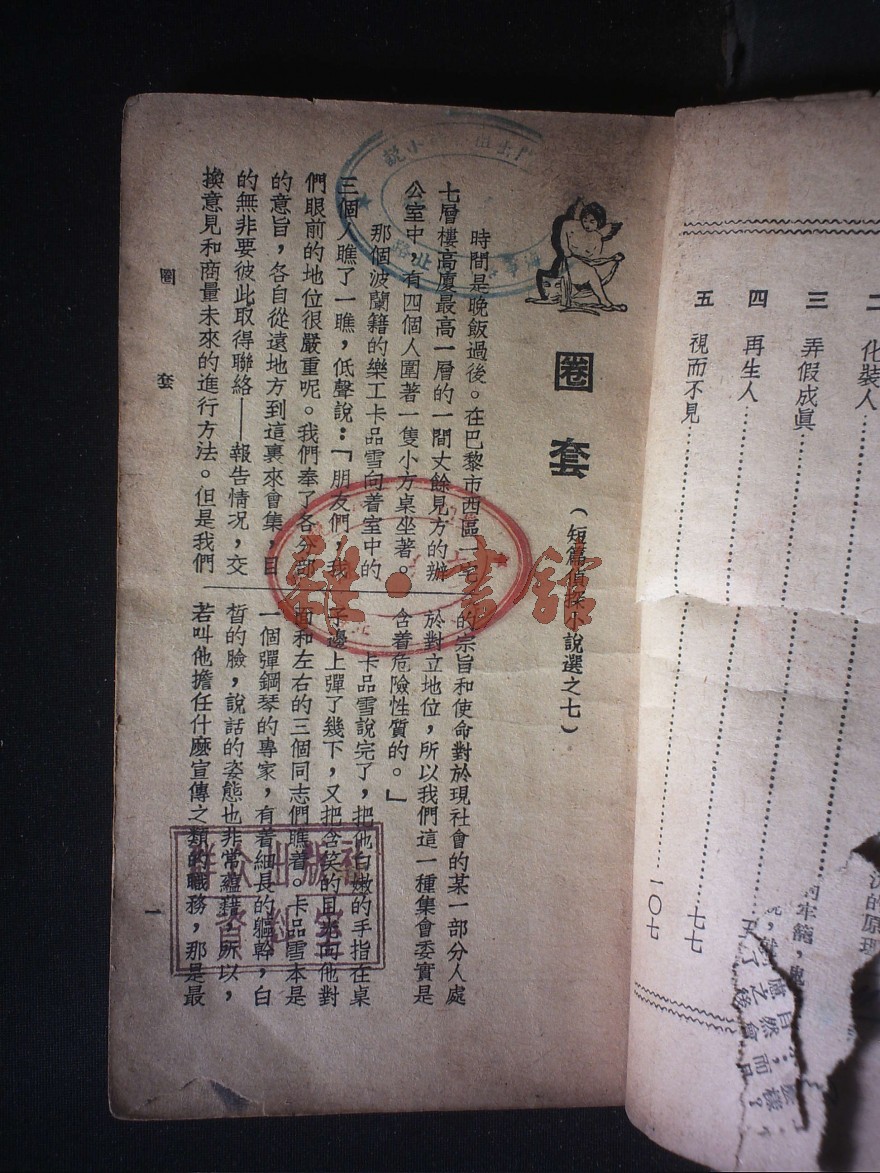 二 化裝人
三 弄假成眞
四 再生人 七七
五 視而不見 一〇七
圈套
（短篇偵探小說選之七）
時間是晚飯過後。在巴黎市西區一宅
七層樓高廈最高一層的一間丈餘見方的辦
公室中，有四個人圍著一隻小方桌坐著。
那個波蘭籍的樂工卡品雪向着室中的
三個人瞧了一瞧，低聲說：「朋友們，我
們眼前的地位很嚴重呢。我們奉了各分部
的意旨，各自從遠地方到這裏來會集，目
的無非要彼此取得聯絡——報告情况，交
換意見和商量未來的進行方法。但是我們
的宗旨和使命對於現社會的某一部分人處
於對立地位，所以我們這一種集會委實是
含着危險性質的。」
卡品雪說完了，把他白嫩的手指在桌
子邊上彈了幾下，又把含笑的目光向他對
面和左右的三個同志們瞧着。卡品雪本是
一個彈鋼琴的專家，有着細長的軀幹，白
皙的臉，說話的姿態也非常蘊藉，所以，
若叫他擔任什麽宣傳之類的職務，那是最
圈套
一
雜·書館
群众出版社
資料室